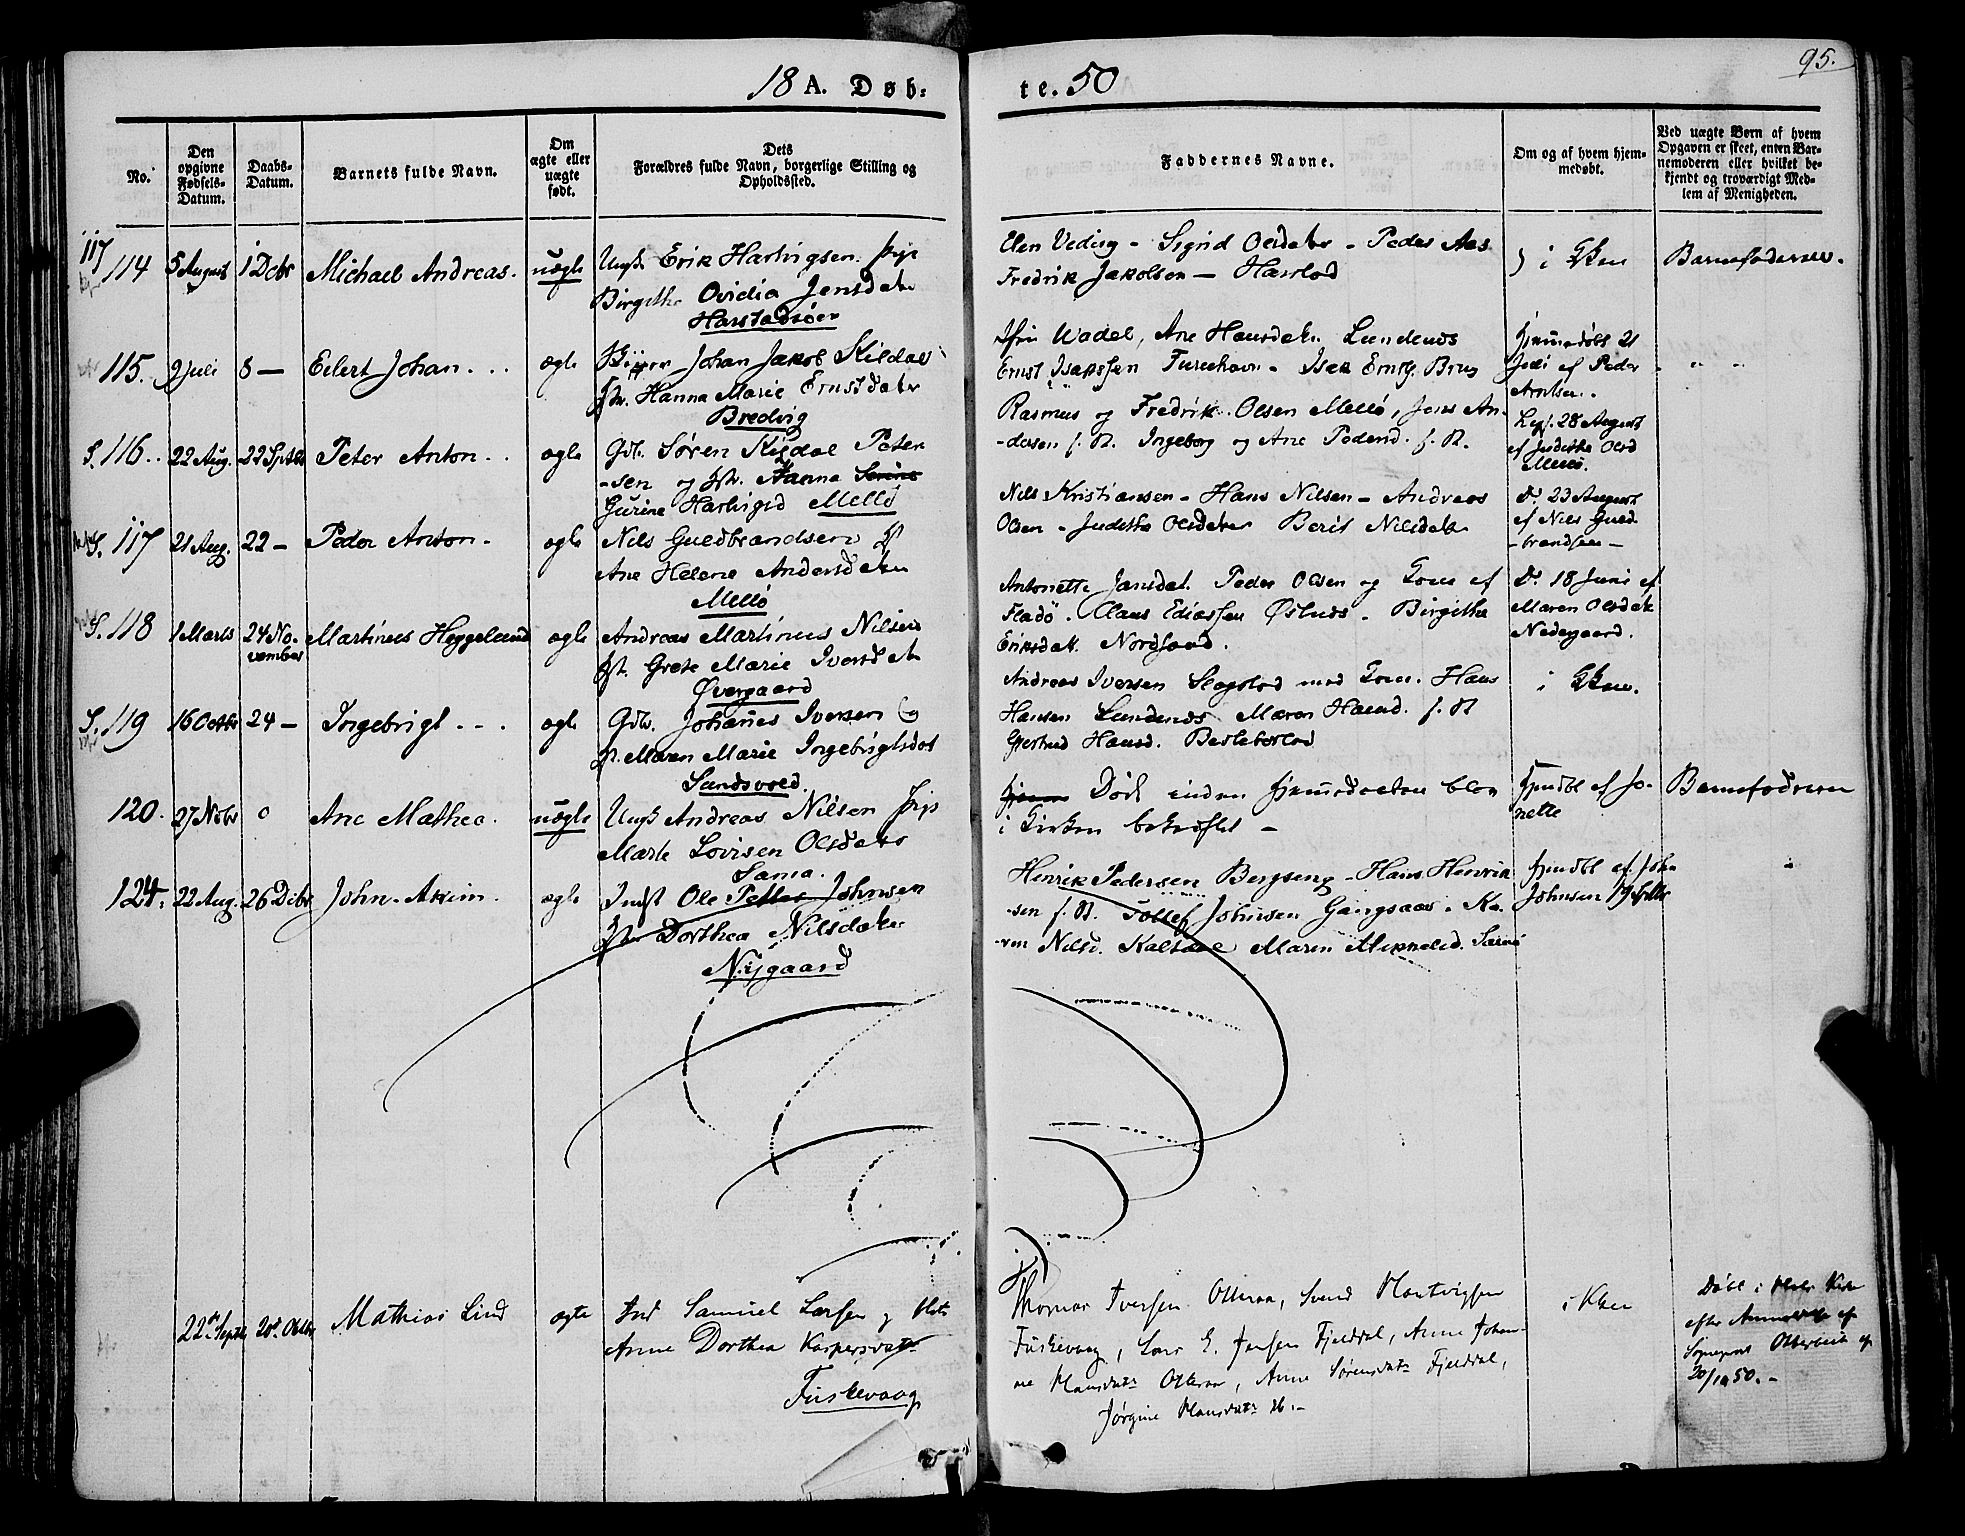 95.
18 A. Døb-
te. 50
No.
Den opgivne Fødsels-Datum.
Daabs-Datum.
Barnets fulde Navn.
Om ægte eller uægte født.
Dets Forældres fulde Navn, borgerlige Stilling og Opholdssted.
Faddernes Navne.
Om og af hvem hjem-
medøbt.
Ved uægte Børn af hvem
Opgaven er skeet, enten Bar-
nemoderen eller hvilket be-
kjendt og troværdigt Med-
lem af Menigheden.
117
114 5 August 1 Decbr Michael Andreas. uægte Ungk. Erik Hartvigsen. Pige
Birgithe Ovidia Jensdatr
Harstadsøen
Elen Veding - Sigrid Olsdatr - Peder Aas
Fredrik Jakobsen - Harstad
i Kken
Barnefaderen.
115. 9 Juli 8 — Eilert Johan . . . ægte Johan Jakob Kildal
Hanna Marie Ernstdatr
Bredvig
Wadel, Ane Hansdatr. Lundenes
Ernst Isakssen - Isak Ernstg. Brug
Hjemmedøbt 21
Juli af Peder
Arntsen.
S. 116.. 22 Aug. 22 Septbr Peter Anton . . ægte Gdb. Søren Kildal Peter
-sen og Hst. Hanna
Gurine Hartvigsd Mellø
Rasmus og Fredrik Olsen Mellø, Jens An-
-dersen f. St. Ingeborg og Ane Pedersd. f. St.
28 August
af Judithe Olsd
Mellø.
S. 117 21 Aug. 22 — Peder Anton - ægte Nils Guldbrandsen
Ane Helene Andersdatr
Mellø
Nils Kristiansen - Hans Nilsen - Andreas
Olsen - Judithe Olsdatr Berit Nilsdatr
D. 23 August
af Nils Guld-
-brandsen -
S. 118 1 Marts 24 No-
vember Martinus Heggelund ægte Andreas Martinus Nilsen
Hst. Grete Marie Iversdatr
Øvergaard
Antonette Jansdat. Peder Olsen og Kone af
Fladø. Claus Eliassen Østnes. Birgithe
Eriksdatr. Nordsand.
D. 18 Juni af
Maren Olsdatr
Nedegaard.
S. 119 16 Octbr 24 — Ingebrigt . . . ægte Gdb. Johannes Iversen &
Maren Marie Ingebrigtsdat
Sandsvold.
Andreas Iversen Slagstad med Kone. Hans
Hansen Lundenes Maren Hansd. f. St
Gjertrud Hansd.
i Kken.
120. 27 Nobr 0 Ane Mathea. uægte Ungk Andreas Nilsen Pige
Marte Lovisen Olsdatr
Sama.
Død inden Hjemmedaaben blev
i Kirken bekræftet -
Hjmdbt af Jo-
nette
Barnefaderen
124. 22 Aug. 26 Decbr John Akim . ægte Indst Ole Petter Johnsen
Dorthea Nilsdatr
Nygaard
Henrik Pedersen Bergseng - Hans Henrik-
-sen f. St. Tollef Johnsen Gangsaas - Ka-
-ren Nilsd. Maren Mikkelsd. Sama
Hjmdbt af John
Johnsen
22de Septbr 20de Octbr Mathias Lind ægte Ind Samuel Larsen og Hst.
Anne Dorthea Kaspersdatr
Fuskevaag
Thomas Iversen Otteraa, Svend Hartvigsen
Fuskevaag, Lars E. Jensen Fjeldal, Anne Johan-
ne Hansdatr Otteraa, Anne Sørensdatr Fjeldal,
Jørgine Hansdatr ib. -
i Kken
Døbt i
efter af
Sogneprest af
20/10 50. -